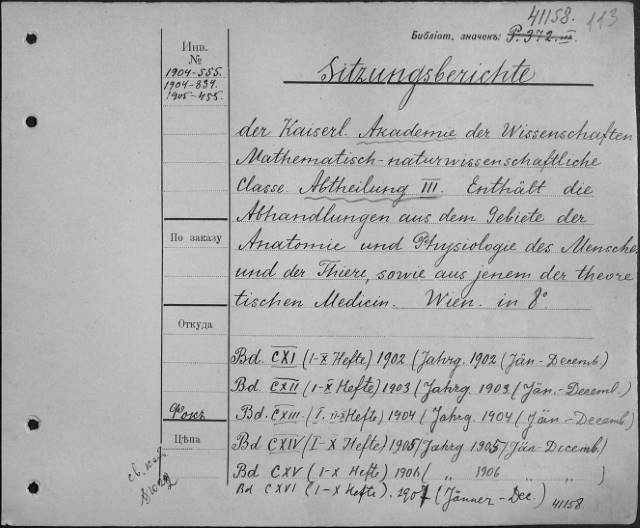 41158. 113
Библіот. значекъ: P. 372. III
Инв.
№
1904-555.
1904-834.
1905-455.
Sitzungsberichte
der Kaiserl. Akademie der Wissenschaften
Mathematisch-naturwissenschaftliche
Classe. Abtheilung III. Enthält die
Abhandlungen aus dem Gebiete der
Anatomie und Physiologie des Mensche
und der Thiere, sowie aus jenem der theore
tischen Medicin. Wien. in 8°
По заказу
Откуда
Bd. CXI (I-X Hefte) 1902 (Jahrg. 1902 (Jän.-Decemb.)
Bd. CXII (I-X Hefte) 1903 (Jahrg. 1903 (Jän.-Decemb.)
Фокъ
Bd. CXIII. (I. II-X Hefte) 1904 (Jahrg. 1904 (Jän.-Decemb.)
Цѣна
Bd CXIV (I-X Hefte) 1905 (Jahrg 1905 (Jän-Decemb.)
Bd CXV (I-X Hefte) 1906 ( „ 1906 „ „ )
Bd CXVI (I-X Hefte). 1907 (Jänner-Dec.) 41158.